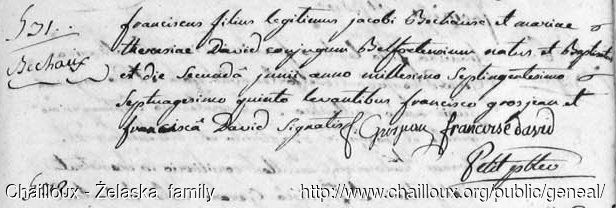 531..
Bechaux
franciscus filius legitimus jacobi Bechause et mariae
therasiae David conjugum Belfortensium natus et Baptisatus
est die secunda junii anno millesimo Septingentesimo
Septuagesimo quinto levantibus francisco grosjean et
francisca David Signatis f. Grosjean francoise david
Petit pbter
Chailloux - Želaska family http://www.chailloux.org/public/geneal/